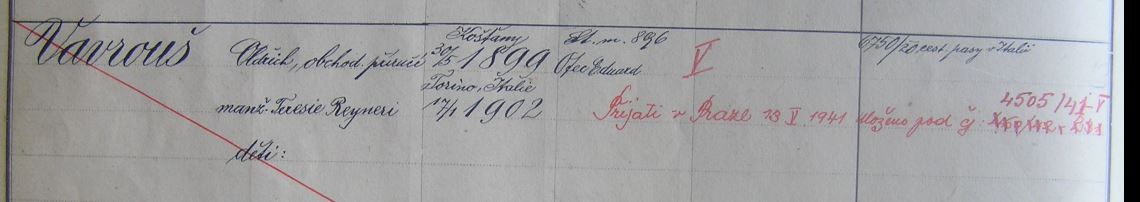 Vavrouš Oldřich, obchod. příručí Košťany 30/5 1899 St. m. 896 Otec Eduard V 6750/20 cest. pasy v Italii
manž. Teresie Reyneri Torino, Italie 17/1 1902 Přijati v Praze 13 V. 1941 uloženo pod čj: 4505/41-V
děti: